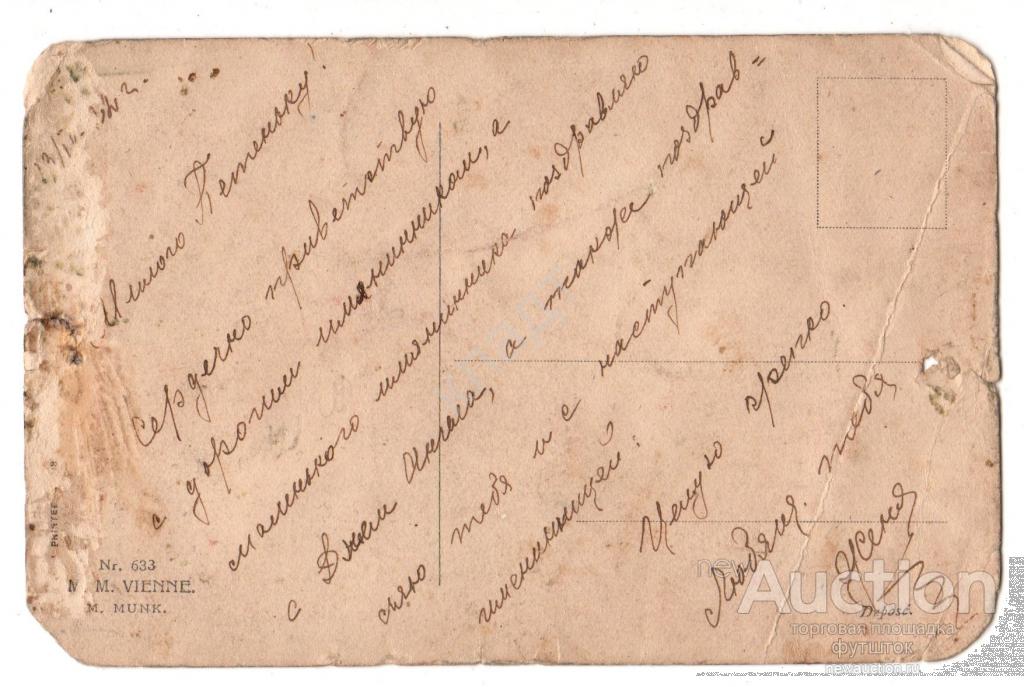 Милого Петеньку!
Сердечно приветствую
с дорогим имянинником, а
маленького имянинника поздравляю
с Днем Ангела, а также поздрав=
ляю тебя и с наступающей
имениницей. Целую крепко.
Любящая тебя
Женя
PRINTED
Nr. 633
M. M. VIENNE.
M. MUNK.
Déposé.
newAuction
торговая площадка
футшток
newauction.ru